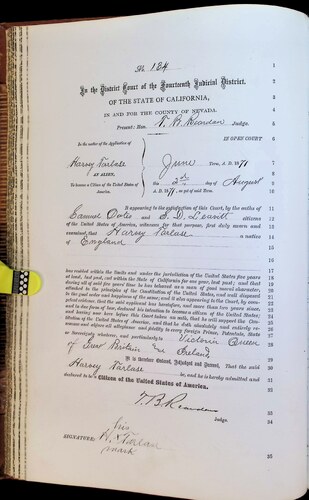 No. 184
In the District Court of the Fourteenth Judicial District,
OF THE STATE OF CALIFORNIA,
IN AND FOR THE COUNTY OF NEVADA.
Present: Hon. T. B. Reardan Judge.
IN OPEN COURT
In the matter of the Application of
Harvey
AN ALIEN,
To become a Citizen of the United States of America.
June Term, A. D. 1871
this 2nd day of August
A. D. 1871, as per of said Term.
It appearing to the satisfaction of this Court, by the oaths of
Samuel and E. D. Leavitt citizens
of the United States of America, witnesses for that purpose, first duly sworn and
examined that Harvey a native
of England
has resided within the limits and under the jurisdiction of the United States five years
at least, last past, and within the State of California for one year, last past; and that
during all of said five years' time he has behaved as a man of good moral character,
attached to the principles of the Constitution of the United States, and well disposed
to the good order and happiness of the same; and it also appearing to the Court, by com-
petent evidence, that the said applicant has heretofore, and more than two years since,
and in due form of law, declared his intention to become a citizen of the United States,
and having now here before this Court taken an oath, that he will support the Con-
stitution of the United States of America, and that he doth absolutely and entirely re-
nounce and abjure all allegiance and fidelity to every foreign Prince, Potentate, State
or Sovereignty whatever, and particularly to Victoria Queen
of Great Britain and Ireland
It is therefore Ordered, Adjudged and Decreed, That the said
Harvey
be, and he is hereby admitted and
declared to be a Citizen of the United States of America.
T. B. Reardan
Judge.
his
SIGNATURE: X
mark
1
2
3
4
5
6
7
8
9
10
11
12
13
14
15
16
17
18
19
20
21
22
23
24
25
26
27
28
29
30
31
32
33
34
35